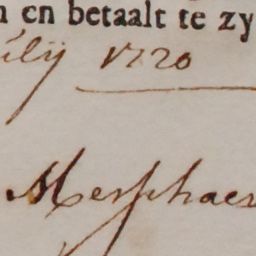 n en betaalt te zy
ulij 1720
Mersshaer